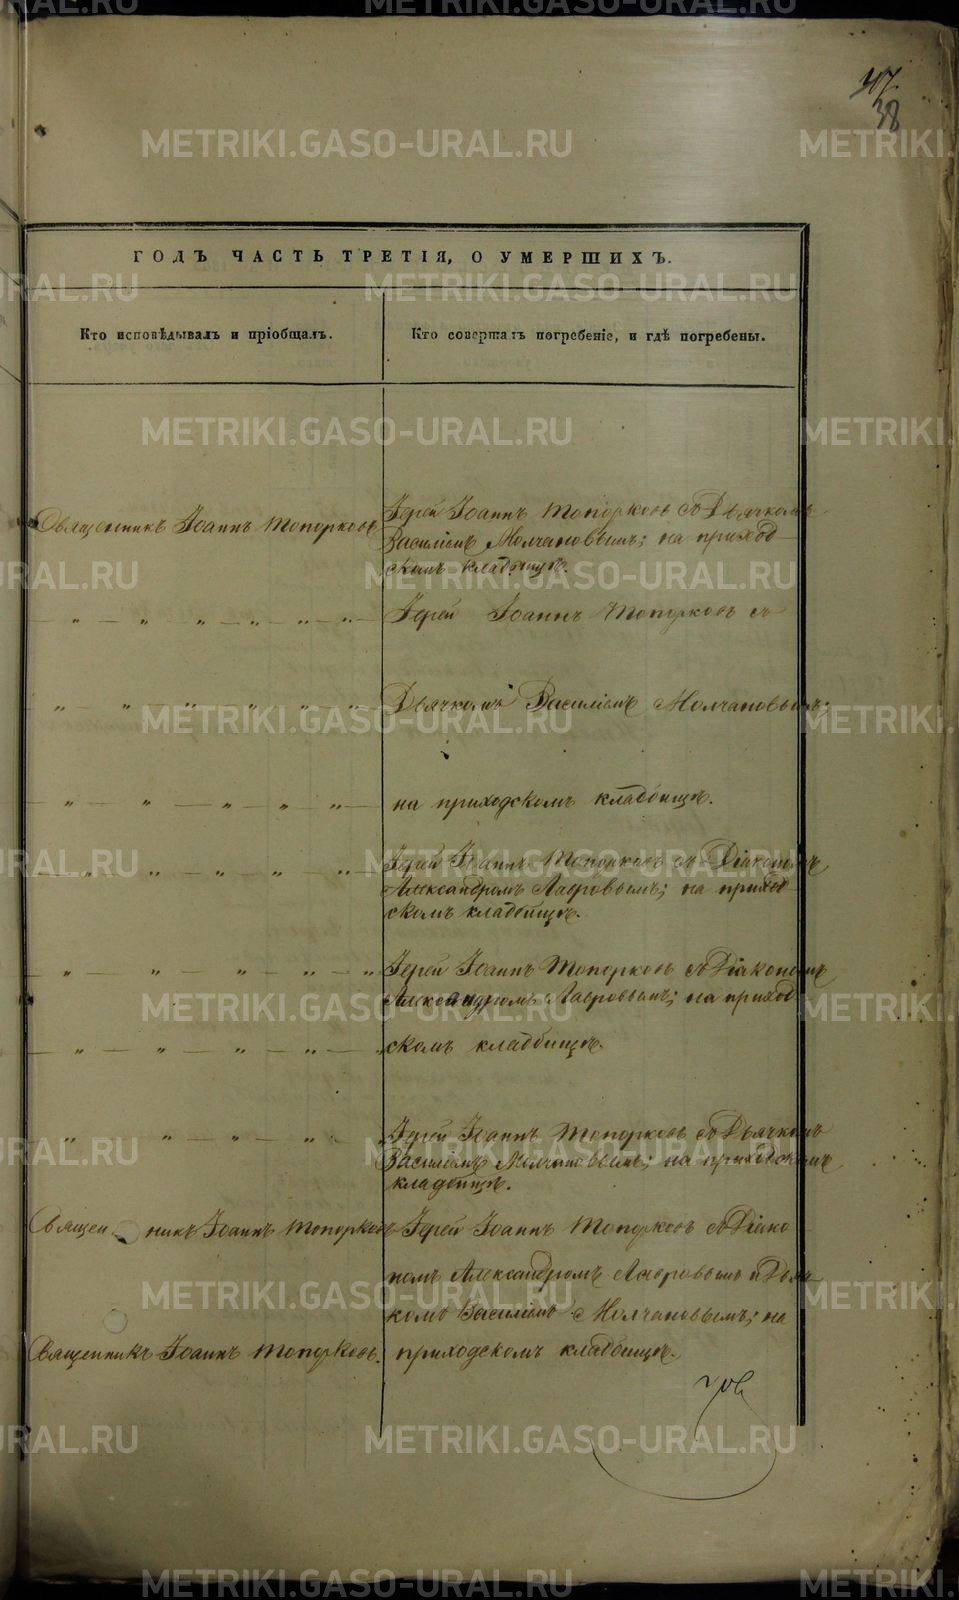 38
ГОДЪ ЧАСТЬ ТРЕТІЯ, О УМЕРШИХЪ.
Кто исповѣдывалъ и пріобщалъ.
Кто совершалъ погребеніе, и гдѣ погребены.
Священникъ Іоаннъ Топорковъ
Іерей Іоаннъ Топорковъ съ Дьячкомъ
Василіемъ Молчановымъ; на приход-
скомъ кладбищѣ.
— „ — „ — „ — „ — „ — „ —
Іерей Іоаннъ Топорковъ съ
„ — „ — „ — „ — „ — „
Дьячкомъ Василіемъ Молчановымъ;
— „ — „ — „ — „ — „ —
на приходскомъ кладбищѣ.
— „ „ — „ — „ „ —
Іерей Іоаннъ Топорковъ съ Діакономъ
Александромъ Лавровымъ; на приход-
скомъ кладбищѣ.
— „ — „ — „ — „ — „
Іерей Іоаннъ Топорковъ съ Діакономъ
Александромъ Лавровымъ; на приход-
— „ — „ — „ — „ — „
скомъ кладбищѣ.
„ „ — „ — „ —
Іерей Іоаннъ Топорковъ съ Дьячкомъ
Василіемъ Молчановымъ; на приходскомъ
кладбищѣ.
Священникъ Іоаннъ Топорковъ
Іерей Іоаннъ Топорковъ съ Діако
номъ Александромъ Лавровымъ и Дьяч-
комъ Василіемъ Молчановымъ; на
Священникъ Іоаннъ Топорковъ.
приходскомъ кладбищѣ.
METRIKI.GASO-URAL.RU